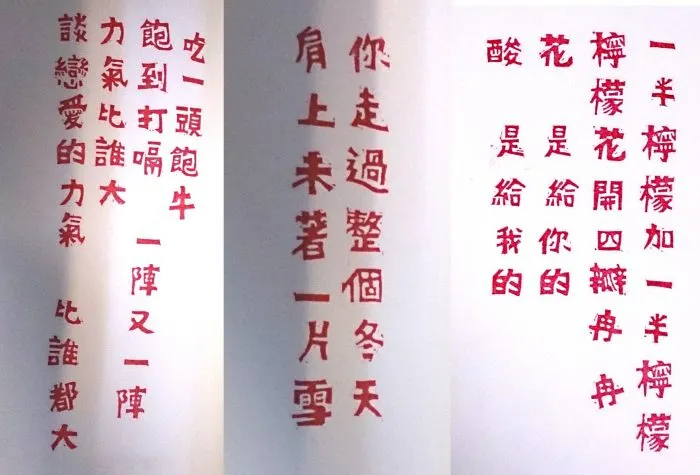 吃一頭飽牛
飽到打嗝 一陣又一陣
力氣比誰大
談戀愛的力氣 比誰都大
你走過整個冬天
肩上来著一片雪
一半檸檬加一半檸檬
檸檬花開四瓣冉冉
花 是給你的
酸 是給我的